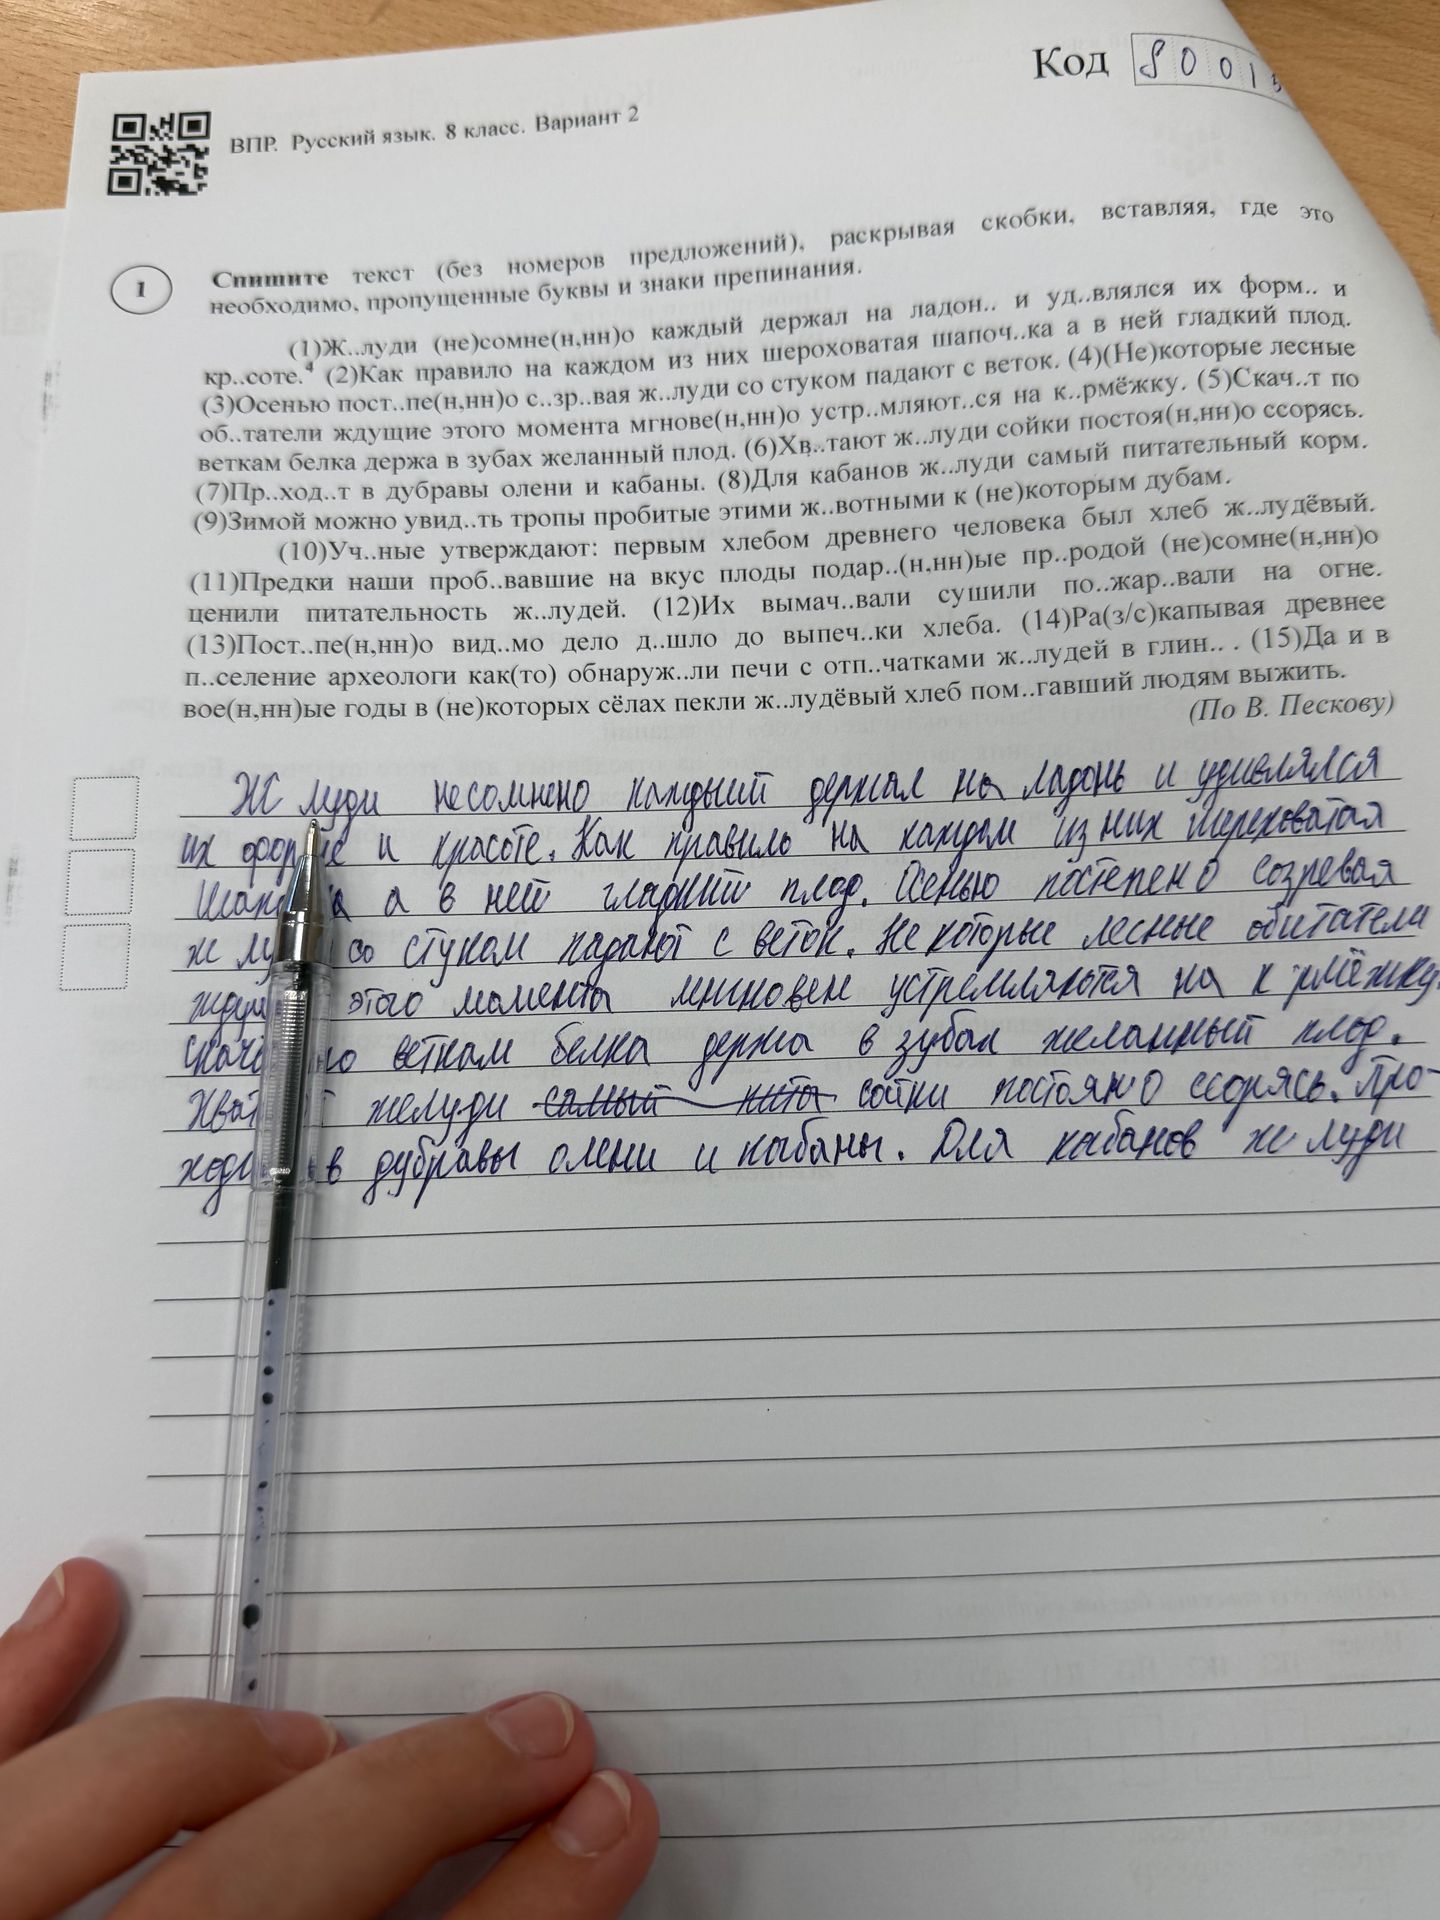 Код 8001
ВПР. Русский язык. 8 класс. Вариант 2
1
Спишите текст (без номеров предложений), раскрывая скобки, вставляя, где это
необходимо, пропущенные буквы и знаки препинания.
(1)Ж..луди (не)сомне(н,нн)о каждый держал на ладон.. и уд..влялся их форм.. и
кр..соте.⁴ (2)Как правило на каждом из них шероховатая шапоч..ка а в ней гладкий плод.
(3)Осенью пост..пе(н,нн)о с..зр..вая ж..луди со стуком падают с веток. (4)(Не)которые лесные
об..татели ждущие этого момента мгнове(н,нн)о устр..мляют..ся на к..рмёжку. (5)Скач..т по
веткам белка держа в зубах желанный плод. (6)Хв..тают ж..луди сойки постоя(н,нн)о ссорясь.
(7)Пр..ход..т в дубравы олени и кабаны. (8)Для кабанов ж..луди самый питательный корм.
(9)Зимой можно увид..ть тропы пробитые этими ж..вотными к (не)которым дубам.
(10)Уч..ные утверждают: первым хлебом древнего человека был хлеб ж..лудёвый.
(11)Предки наши проб..вавшие на вкус плоды подар..(н,нн)ые пр..родой (не)сомне(н,нн)о
ценили питательность ж..лудей. (12)Их вымач..вали сушили по..жар..вали на огне.
(13)Пост..пе(н,нн)о вид..мо дело д..шло до выпеч..ки хлеба. (14)Ра(з/с)капывая древнее
п..селение археологи как(то) обнаруж..ли печи с отп..чатками ж..лудей в глин.. . (15)Да и в
вое(н,нн)ые годы в (не)которых сёлах пекли ж..лудёвый хлеб пом..гавший людям выжить.
(По В. Пескову)
Ж луди несомнено каждый держал на ладонь и удивлялся
их форме и красоте. Как правило на каждом из них шереховатая
а в ней гладкий плод. Осенью постепено созревая
со стуком падают с веток. Не которые лесные обитатели
этого момента мгновен устремляются на к рмёжку.
по веткам белка держа в зубах желанный плод.
желуди самый пита сойки постояно ссорясь. При-
в дубравы олени и кабаны. Для кабанов ж луди